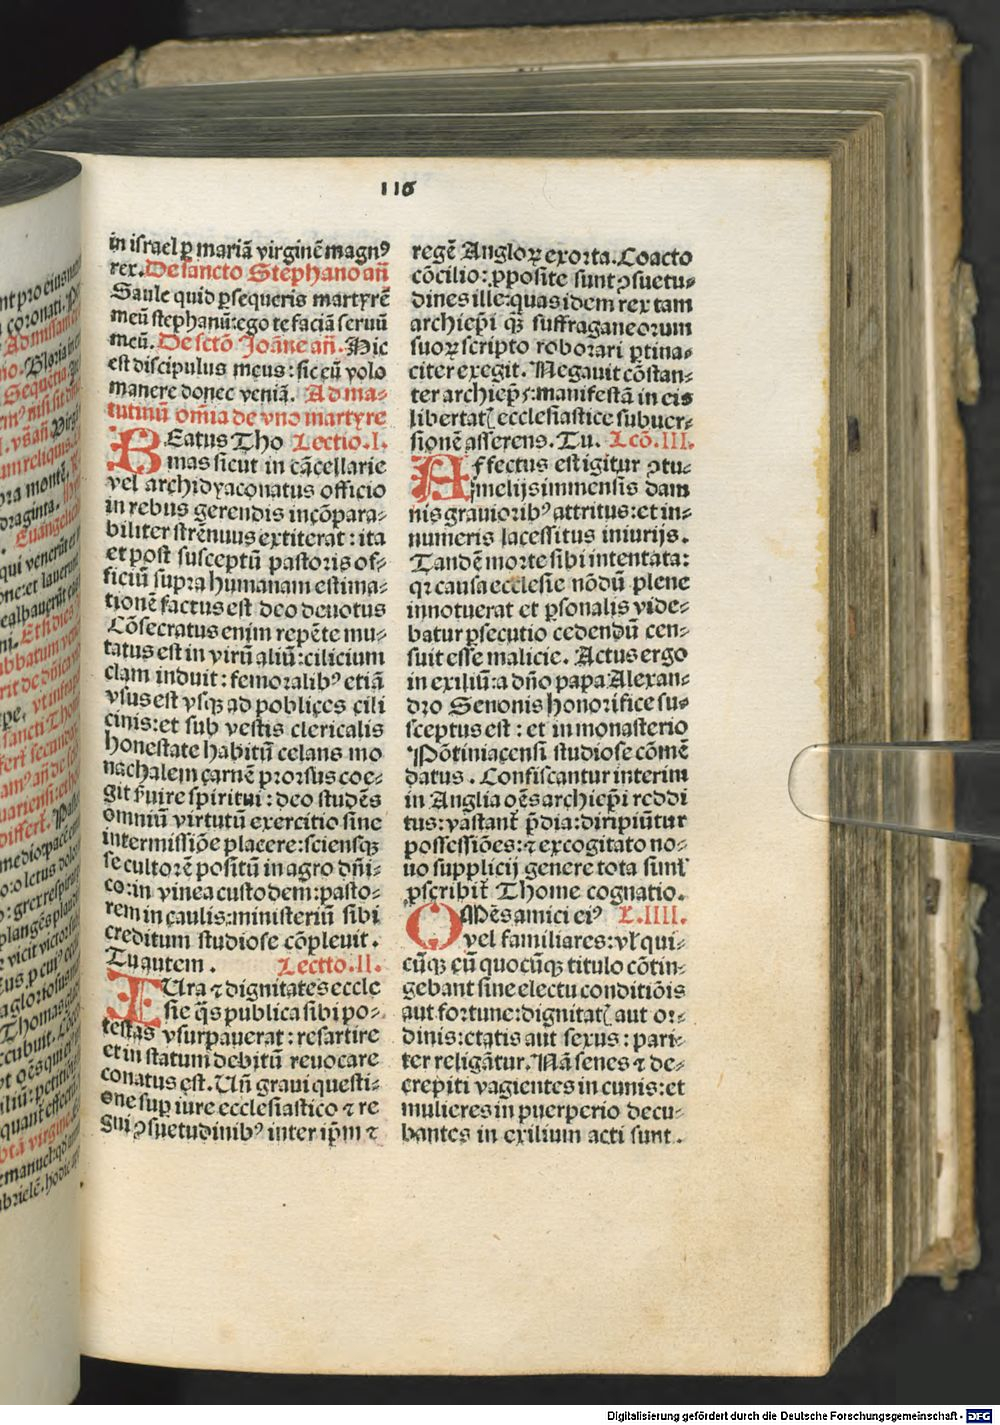 116
in israel ꝑ mariā virginē magnꝰ
rex. De sancto Stephano añ
Saule quid ꝑsequeris martyrē
meū stephanū: ego te faciā seruū
meū. De sctō Joāne añ. Hic
est discipulus meus: sic eū volo
manere donec veniā. Ad ma⸗
tutinū om̄ia de vno martyre
BEatus Tho Lectio. I.
mas sicut in cācellarie
vel archidyaconatus officio
in rebus gerendis incōpara⸗
biliter strēnuus extiterat: ita
et post susceptū pastoris of⸗
ficiū supra humanam estima⸗
tionē factus est deo deuotus
Cōsecratus enim repēte mu⸗
tatus est in virū aliū: cilicium
clam induit: femoralibꝰ etiā
vsus est vsqꝫ ad poblices cili
cinis: et sub vestis clericalis
honestate habitū celans mo
nachalem carnē prorsus coe⸗
git ẜuire spiritui: deo studēs
omniū virtutū exercitio sine
intermissiōe placere: sciensqꝫ
se cultorē positū in agro dñi⸗
co: in vinea custodem: pasto⸗
rem in caulis: ministeriū sibi
creditum studiose cōpleuit.
Tu autem. Lectto. II.
IUra ⁊ dignitates eccle
sie q̄s publica sibi po⸗
testas vsurpauerat: resartire
et in statum debitū reuocare
conatus est. Uñ graui questi⸗
one suꝑ iure ecclesiastico ⁊ re
gni ꝯsuetudinibꝰ inter ip̄m ⁊
regē Angloꝝ exorta. Coacto
cōcilio: ꝓposite sunt ꝯsuetu⸗
dines ille: quas idem rex tam
archiep̄i qꝫ suffraganeorum
suoꝝ scripto roborari ꝑtina⸗
citer exegit. Negauit cōstan⸗
ter archiep̄s: manifestā in eis
libertatꝭ ecclesiastice subuer⸗
sionē asserens. Tu. Lcō. III.
AFfectus est igitur ꝯtu⸗
melijs immensis dam
nis grauioribꝰ attritus: et in⸗
numeris lacessitus iniurijs.
Tandē morte sibi intentata:
qꝛ causa ecclesie nōdū plene
innotuerat et ꝑsonalis vide⸗
batur ꝑsecutio cedendū cen⸗
suit esse malicie. Actus ergo
in exiliū: a dño papa Alexan⸗
dro Senonis honorifice su⸗
sceptus est: et in monasterio
Pōtiniacensi studiose cōmē
datus. Confiscantur interim
in Anglia oēs archiep̄i reddi
tus: vastant̄ p̄dia: diripiūtur
possessiōes: ⁊ excogitato no⸗
uo supplicij genere tota simĺ
ꝓscribit̄ Thome cognatio.
OMēs amici eiꝰ L. IIII.
vel familiares: vĺ qui⸗
cūqꝫ eū quocūqꝫ titulo cōtin⸗
gebant sine electu conditiōis
aut fortune: dignitatꝭ aut or⸗
dinis: etatis aut sexus: pari⸗
ter religātur. Nā senes ⁊ de⸗
crepiti vagientes in cunis: et
mulieres in puerperio decu⸗
bantes in exilium acti sunt.
Digitalisierung gefördert durch die Deutsche Forschungsgemeinschaft - DFG